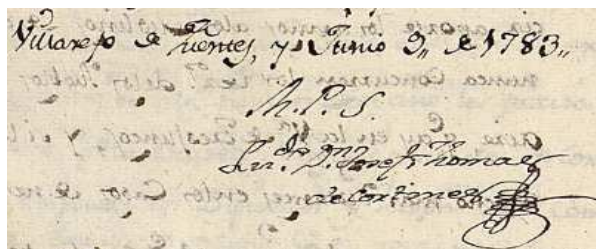 Villarejo de Fuentes, y Junio 9,, de 1783,,
M. P. S.
Lic.do D.n Josef Thomas
de Cortines